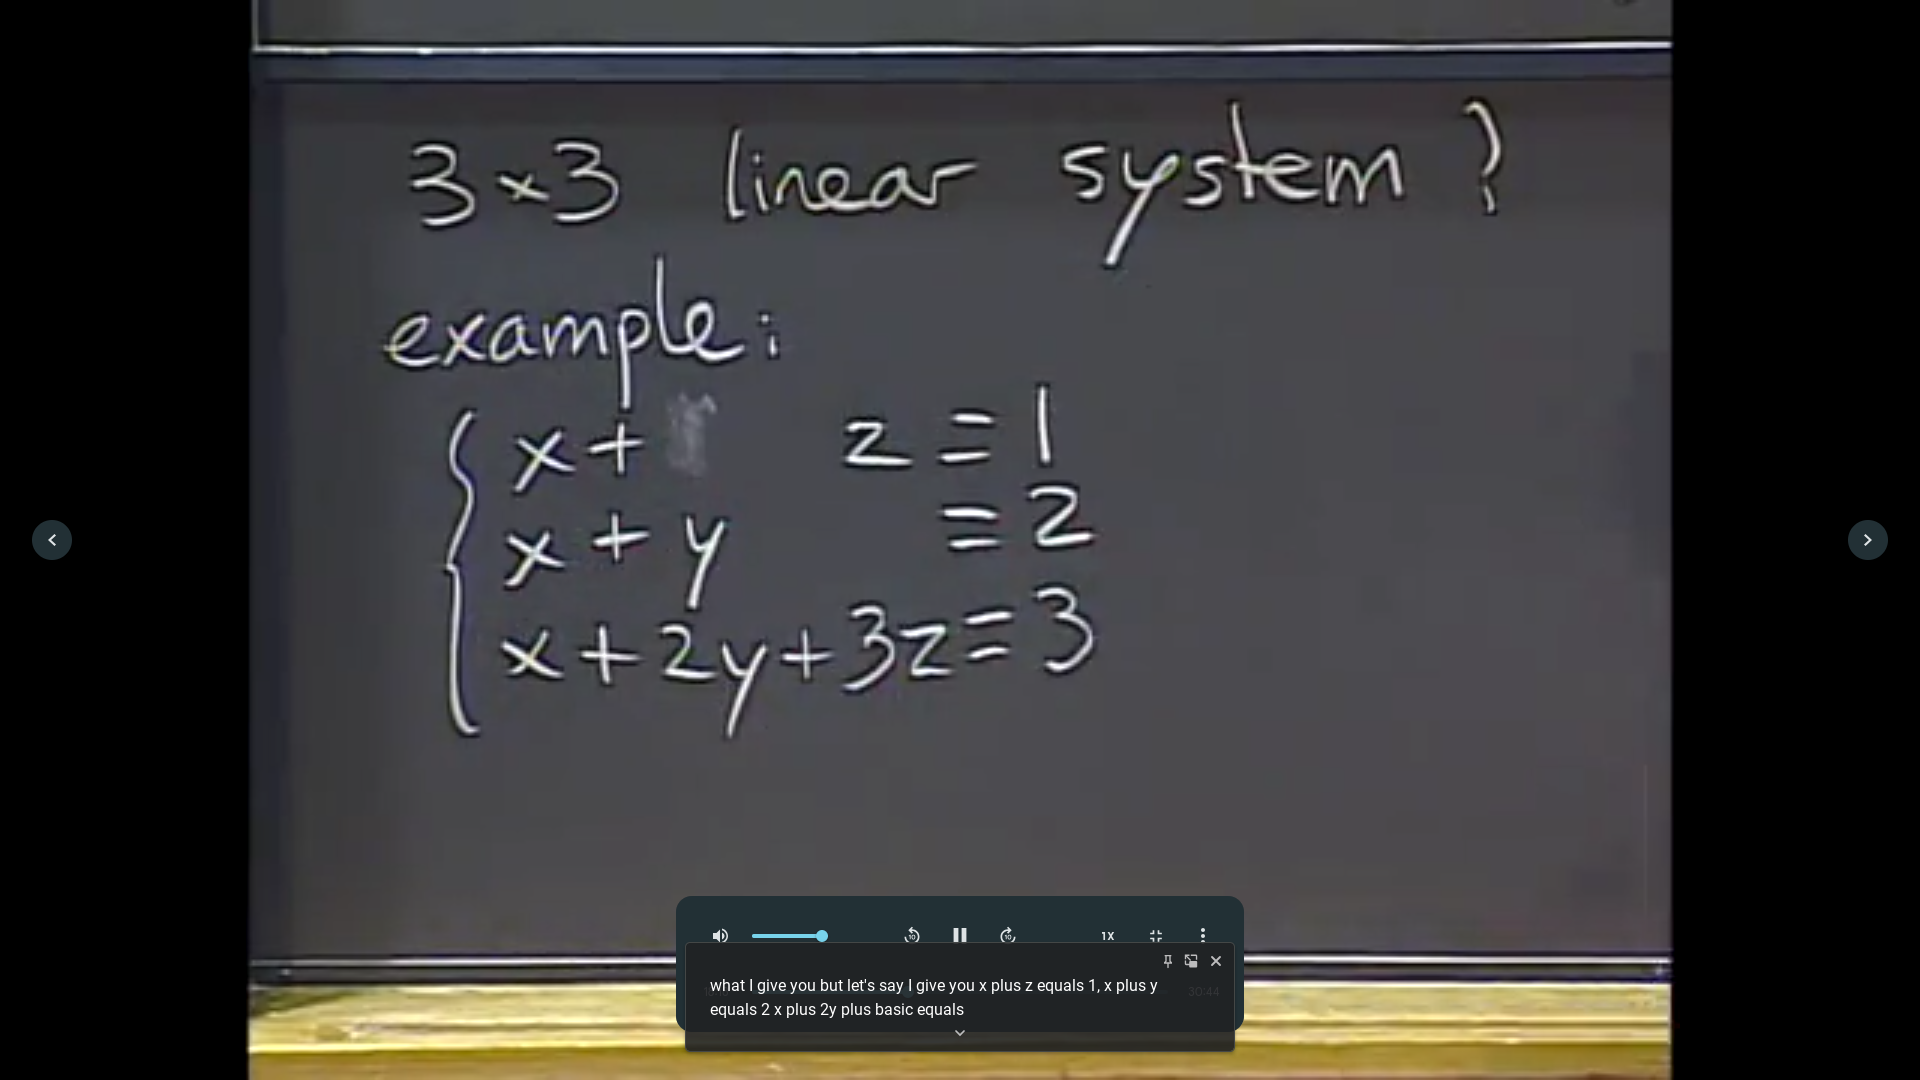 3×3 linear system?
example:
x + z = 1
x + y = 2
x + 2y + 3z = 3
1X
what I give you but let's say I give you x plus z equals 1, x plus y
equals 2 x plus 2y plus basic equals
30:44